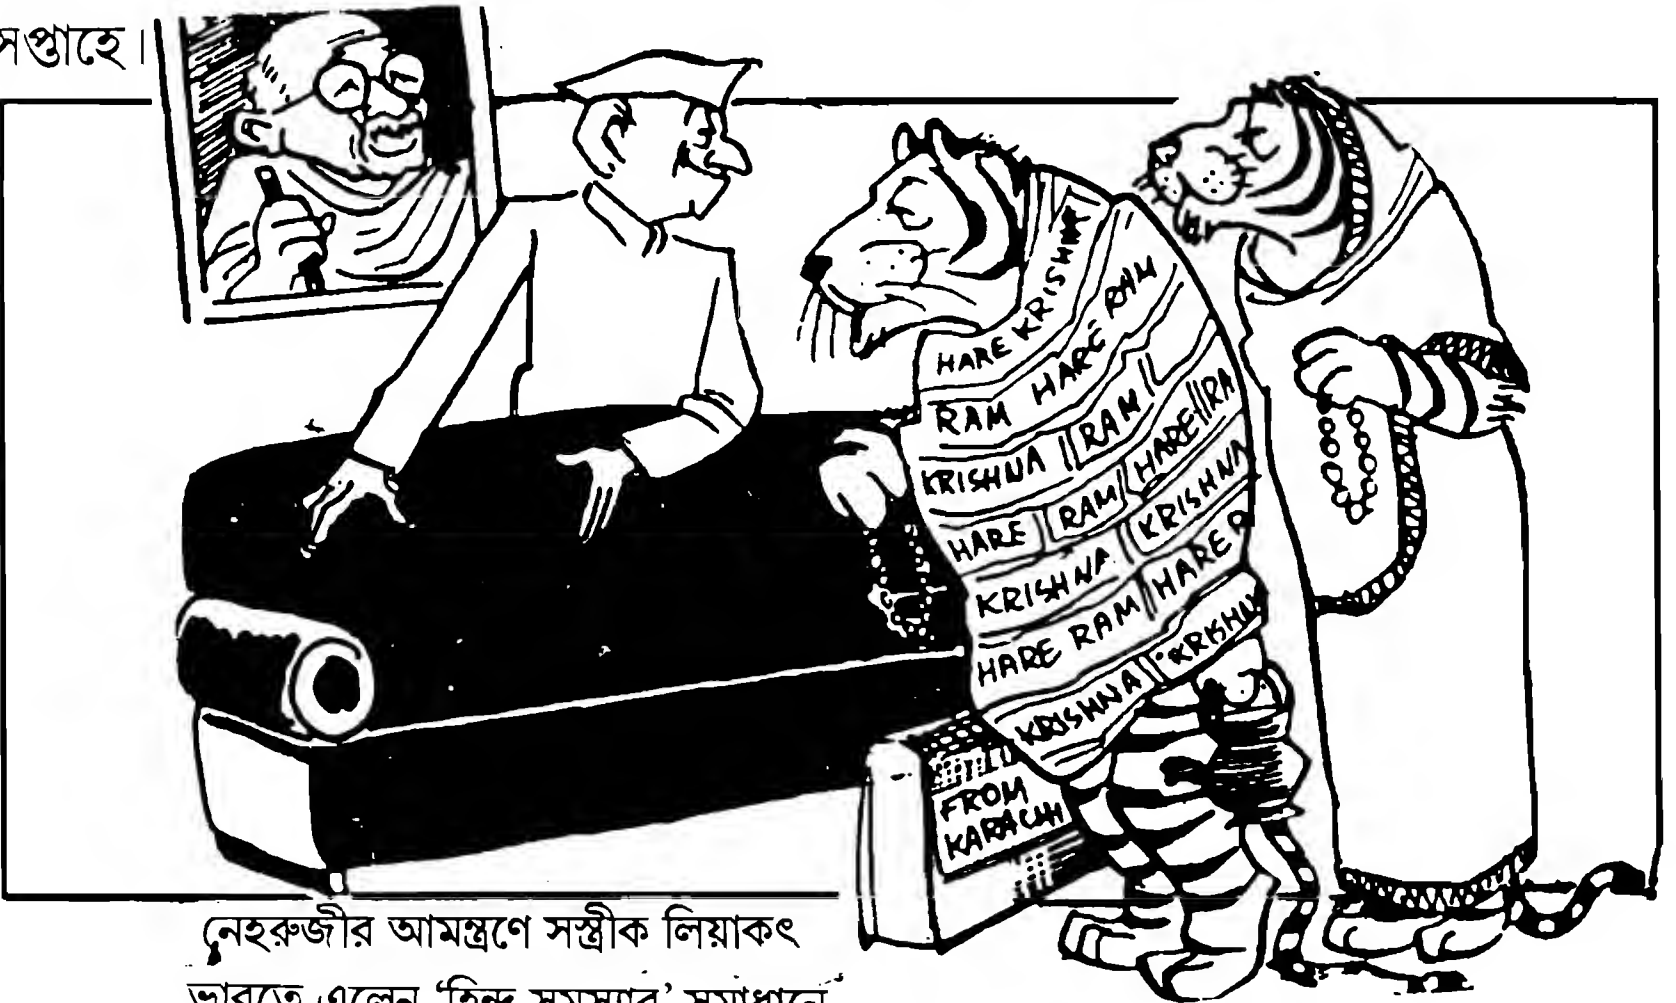 সপ্তাহে।
HARE KRISHNA
RAM HARE RAM
KRISHNA RAM
HARE RAM HARE RA
KRISHNA KRISHNA
HARE RAM HARE R
KRISHNA KRISHNA
FROM
KARACHI
নেহরুজীর আমন্ত্রণে সস্ত্রীক লিয়াকৎ
ভারতে এলেন ‘হিন্দু সমস্যার’ সমাধানে